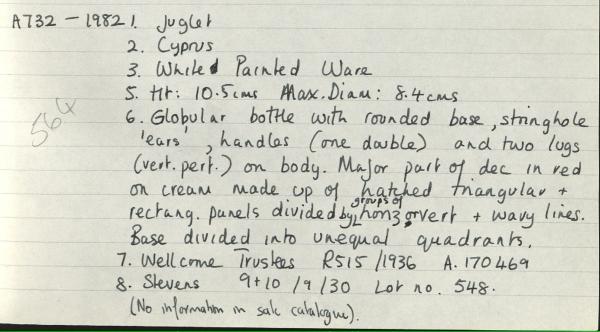 A732 - 1982 1. Juglet
2. Cyprus
3. White Painted Ware
5. Ht: 10.5cms Max. Diam: 8.4cms
564
6. Globular bottle with rounded base, stringhole
'ears', handles (one double) and two lugs
(vert. perf.) on body. Major part of dec in red
on cream made up of hatched triangular +
rectang. panels divided by groups of horiz or vert + wavy lines.
Base divided into unequal quadrants.
7. Wellcome Trustees R515/1936 A.170469
8. Stevens 9+10/9/30 Lot no. 548.
(No information in sale catalogue).